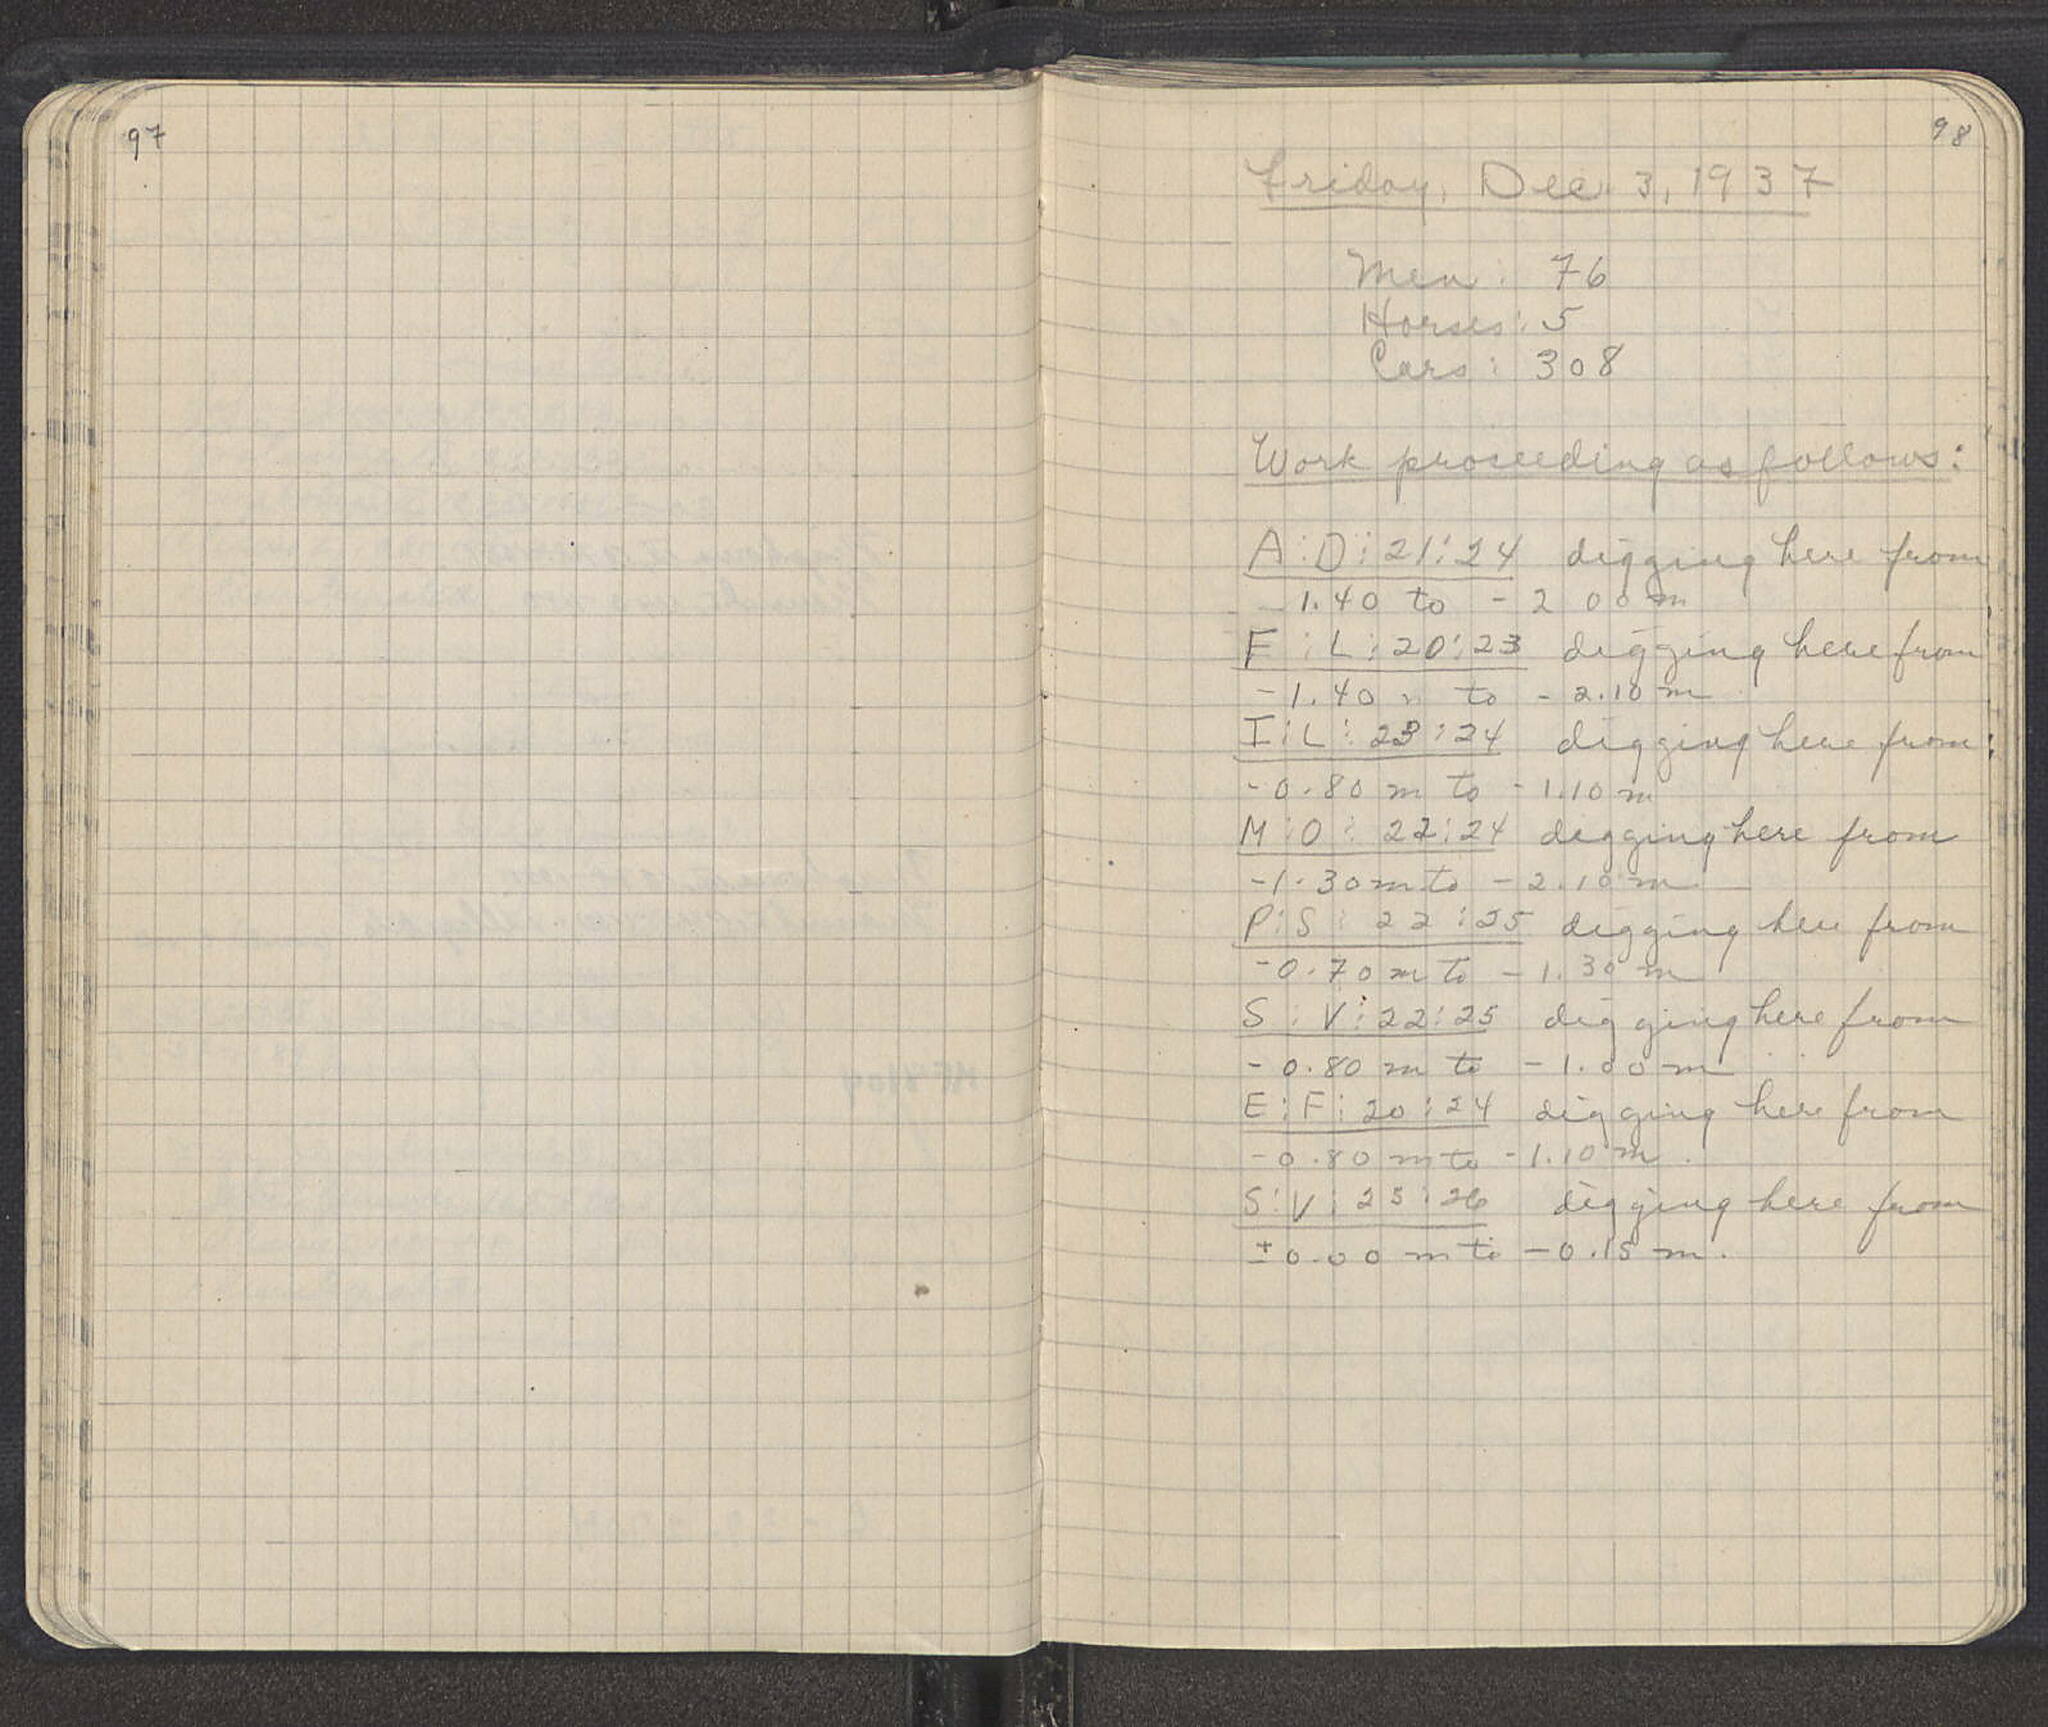 97
98
Friday, Dec. 3, 1937
Men: 76
Horses: 5
Cars: 308
Work proceeding as follows:
A:D:21:24 digging here from
-1.40 to -2.00 m
F:L:20:23 digging here from
-1.40 m to -2.10 m
I:L:23:24 digging here from
-0.80 m to -1.10 m
M:O:22:24 digging here from
-1.30 m to -2.10 m
P:S:22:25 digging here from
-0.70 m to -1.30 m
S:V:22:25 digging here from
-0.80 m to -1.00 m
E:F:20:24 digging here from
-0.80 m to -1.10 m.
S:V:25:26 digging here from
±0.00 m to -0.15 m.